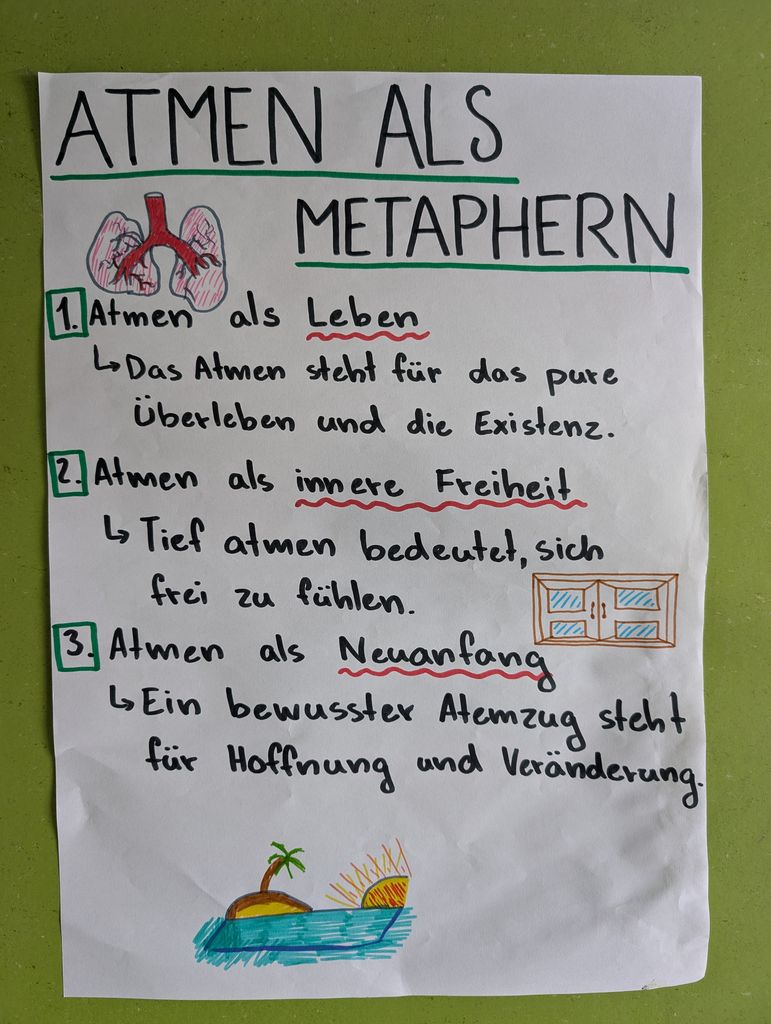 ATMEN ALS
METAPHERN
1. Atmen als Leben
↳ Das Atmen steht für das pure
Überleben und die Existenz.
2. Atmen als innere Freiheit
↳ Tief atmen bedeutet, sich
frei zu fühlen.
3. Atmen als Neuanfang
↳ Ein bewusster Atemzug steht
für Hoffnung und Veränderung.